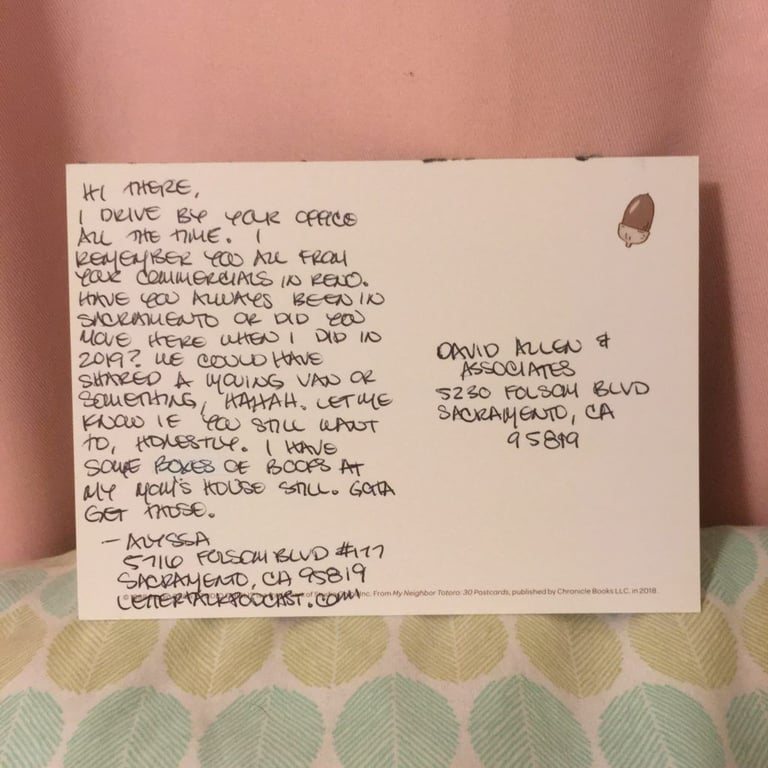 HI THERE,
I DRIVE BY YOUR OFFICE
ALL THE TIME. I
REMEMBER YOU ALL FROM
YOUR COMMERCIALS IN RENO.
HAVE YOU ALWAYS BEEN IN
SACRAMENTO OR DID YOU
MOVE HERE WHEN I DID IN
2019? WE COULD HAVE
SHARED A MOVING VAN OR
SOMETHING, HAHAH. LET ME
KNOW IF YOU STILL WANT
TO, HONESTLY. I HAVE
SOME BOXES OF BOOKS AT
MY MOM'S HOUSE STILL. GOTTA
GET THOSE.
- ALYSSA
5716 FOLSOM BLVD #177
SACRAMENTO, CA 95819
LETTERTALKPODCAST.COM
DAVID ALLEN &
ASSOCIATES
5230 FOLSOM BLVD
SACRAMENTO, CA
95819
Inc. From My Neighbor Totoro: 30 Postcards, published by Chronicle Books LLC. in 2018.